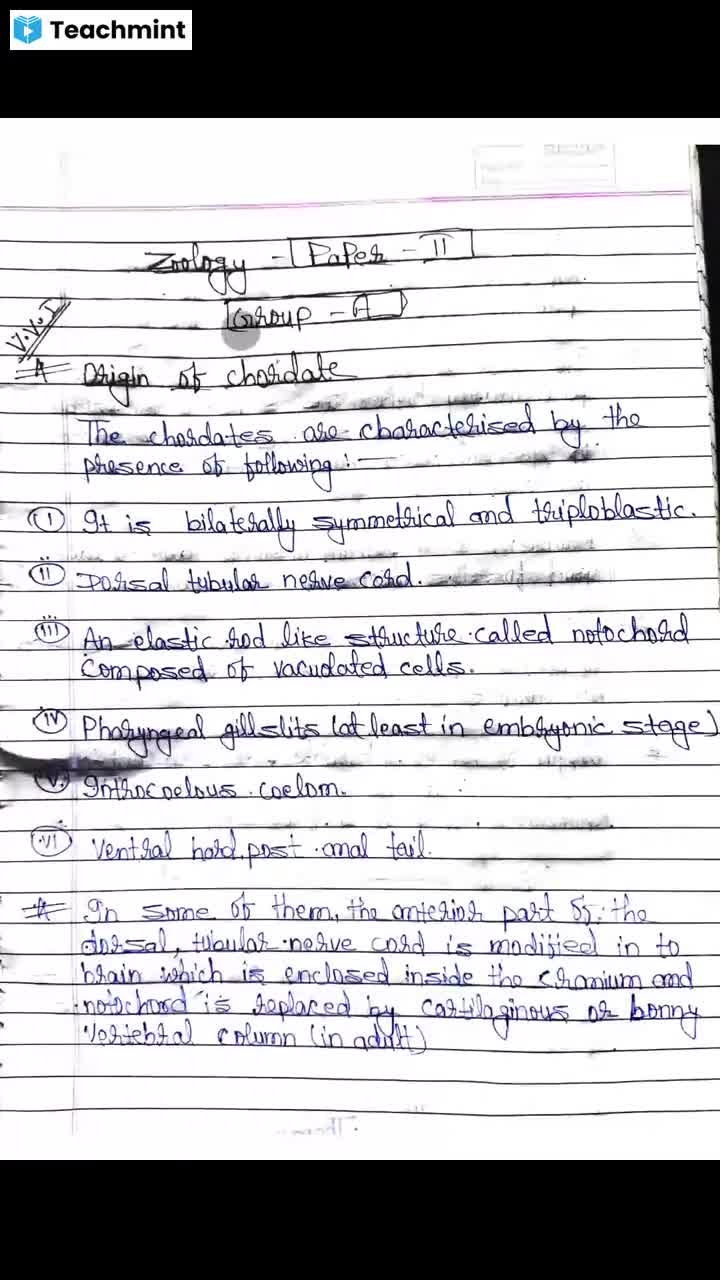 Teachmint
Zoology - Paper - II
Group - A
V.V.I
Origin of chordate
The chordates are characterised by the
presence of following :-
(I) It is bilaterally symmetrical and triploblastic.
(II) Dorsal tubular nerve cord.
(III) An elastic rod like structure called notochord
composed of vacuolated cells.
(IV) Pharyngeal gillslits (at least in embryonic stage)
(V) Inthrocoelous coelom.
(VI) Ventral hard, post anal tail.
In some of them, the anterior part of the
dorsal, tubular nerve cord is modified in to
brain which is enclosed inside the cranium and
notochord is replaced by cartilaginous or bonny
vertebral column (in adult)